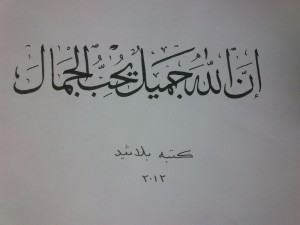 إنّ الله جميل يحبّ الجمال
كتبه بلاشيد
٢٠١٢